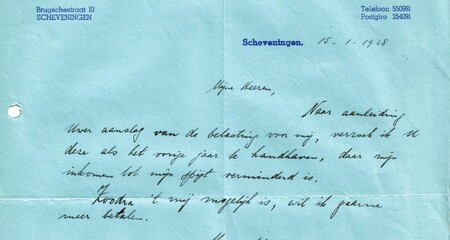 Brugschestraat 10
SCHEVENINGEN
Telefoon 550981
Postgiro 254091
Scheveningen, 15-1-1938
Mijne Heeren,
Naar aanleiding
Uwer aanslag van de belasting voor mij, verzoek ik U
deze als het vorige jaar te handhaven, daar mijn
inkomen tot mijn spijt verminderd is.
Zoodra 't mij mogelijk is, wil ik gaarne
meer betalen.